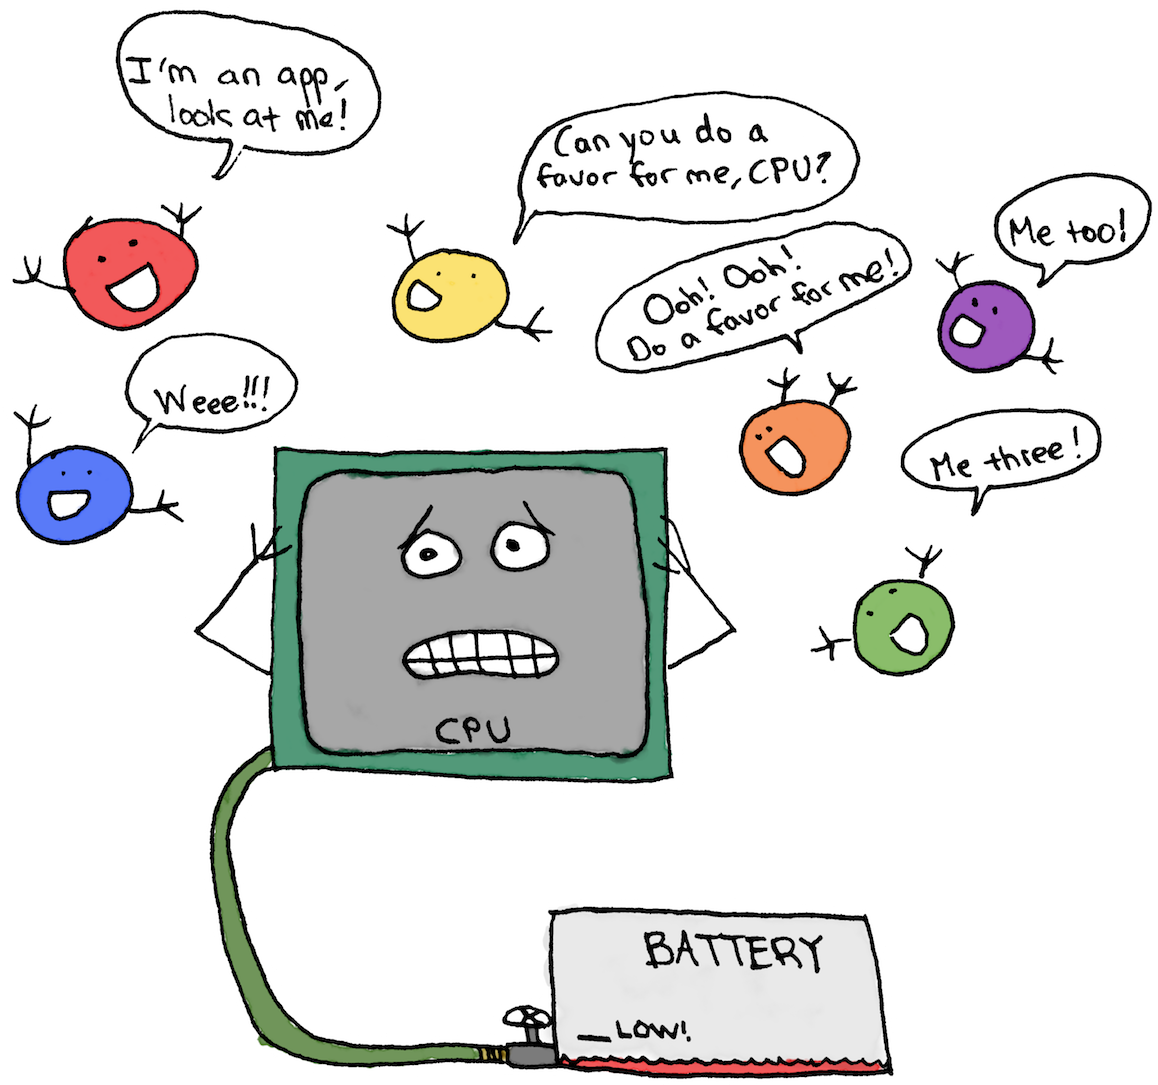 I'm an app,
look at me!
Can you do a
favor for me, CPU?
Ooh! Ooh!
Do a favor for me!
Me too!
Weee!!!
Me three!
CPU
BATTERY
LOW!